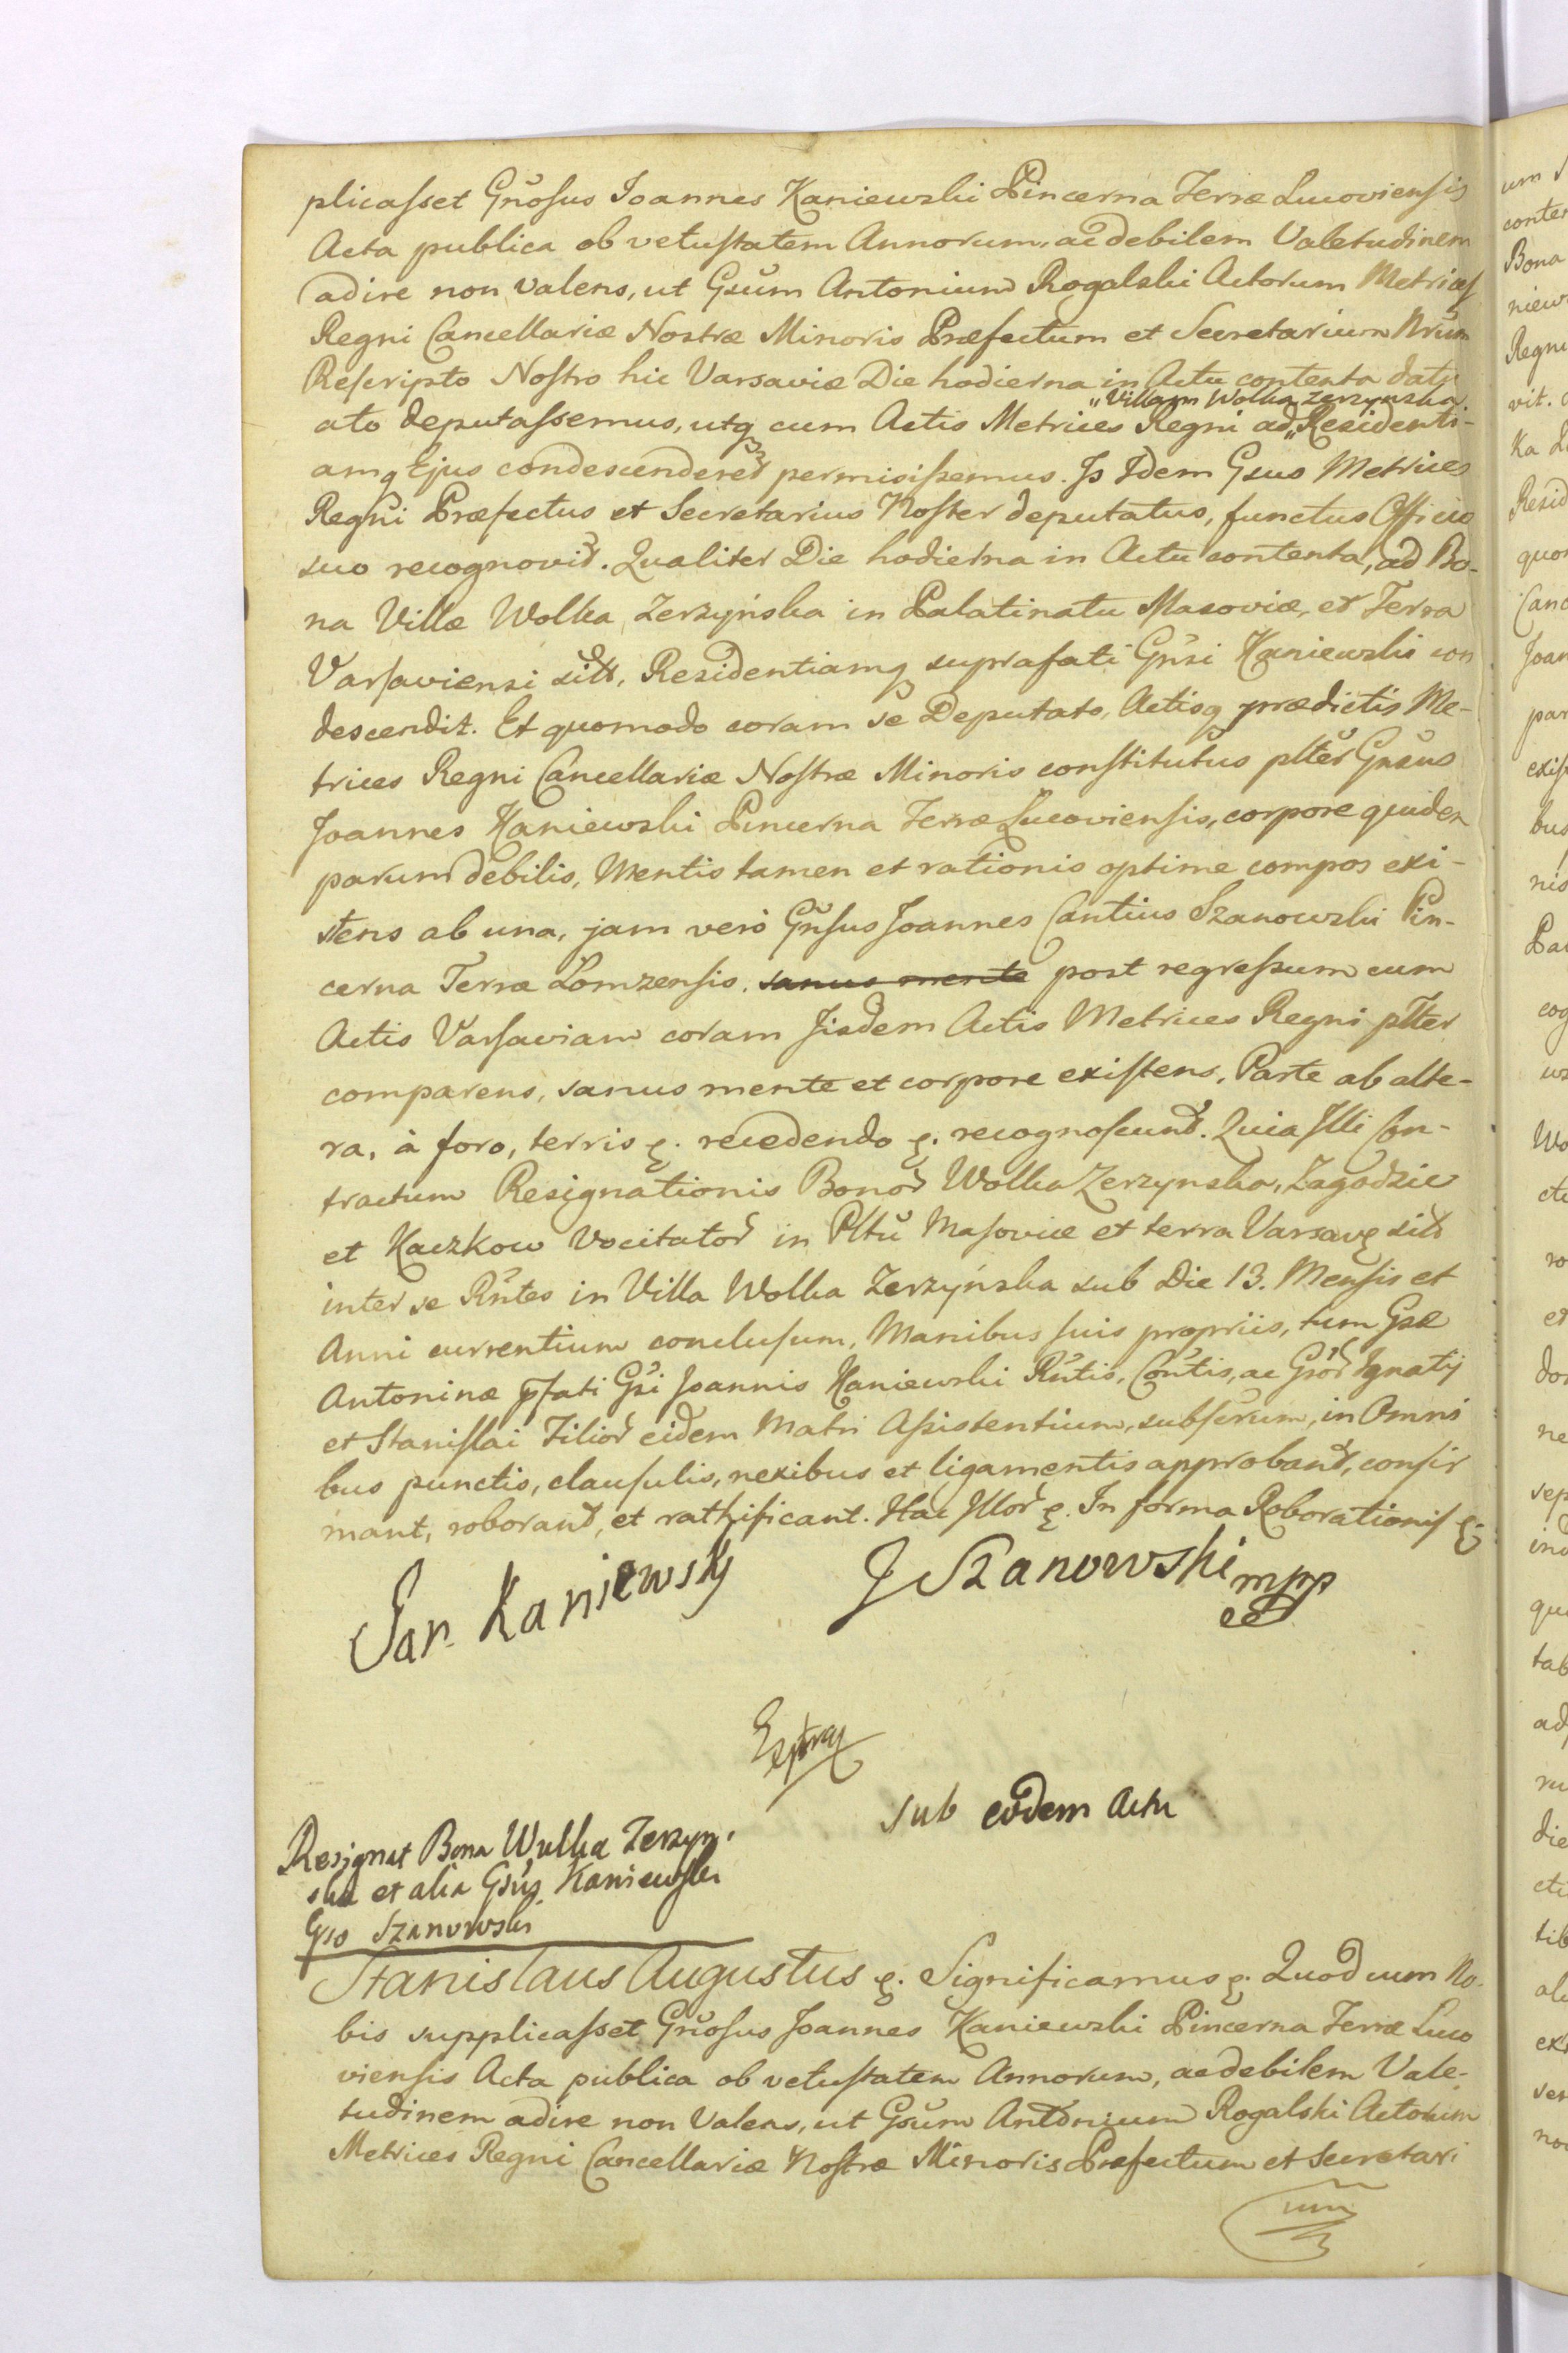 plicasset Gnosus Joannes Kaniewski Pincerna Terræ Lucoviensis
Acta publica ob vetustatem Annorum, ac debilem Valetudinem
adire non valens, ut Gsum Antonium Rogalski Actorum Metrices
Regni Cancellariæ Nostræ Minoris Præfectum et Secretarium Nrum
Rescripto Nostro hic Varsaviæ Die hodierna in Actu contenta dato
„Villam Wolka Zerzynska
ato deputassemus, utq cum Actis Metrices Regni ad„Residenti-
amq Ejus condescenderet permisissemus. Js Jdem Gsus Metrices
Regni Præfectus et Secretarius Noster deputatus, functus Officio
suo recognovit. Qualiter Die hodierna in Actu contenta, ad Bo-
na Villæ Wolka Zerzyńska in Palatinatu Masoviæ, et Terra
Varsaviensi sitt, Residentiamq suprafati Gnsi Kaniewski con
descendit. Et quomodo coram se Deputato, Actisq prædictis Me-
trices Regni Cancellariæ Nostræ Minoris constitutus plter Gnsus
Joannes Kaniewski Pincerna Terræ Lucoviensis, corpore quidem
parum debilis, Mentis tamen et rationis optime compos exi-
stens ab una, jam verò Gnsus Joannes Cantius Szanowski Pin-
cerna Terræ Lomzensis, sanus mente post regressum cum
Actis Varsaviam coram Jisdem Actis Metrices Regni plter
comparens, sanus mente et corpore existens, Parte ab alte-
ra, à foro, terris ę. recedendo ę. recognoscunt. Quia Jlli Con-
tractum Resignationis Bonor Wolka Zerzynska, Zagodzie
et Kaczkow Vocitator in Pltu Masoviæ et terra Varsavę sitt
inter se Rntes in Villa Wolka Zerzyńska sub Die 13. Mensis et
Anni currentium conclusum, Manibus suis propriis, tum Gsæ
Antoninæ pfati Gsi Joannis Kaniewski Rntis, Contis, ac Gsor Jgnatij
et Stanislai Filior eidem Matri Assistentium, subscrum, in Omni
bus punctis, clausulis, nexibus et ligamentis approbant, confir
mant, roborant, et rathificant. Hac Jllor ę. In forma Roborationis ę.
Jan Kaniewsky
J Szanowski mpp
sub eodem Actu
Resignat Bona Wulka Zerzyn.
ska et alia Gsus Kaniewski
Gso Szanowski
Stanislaus Augustus ę. Significamus ę. Quod cum No.
bis supplicasset Gnosus Joannes Kaniewski Pincerna Terræ Luco
viensis Acta publica ob vetustatem Annorum, ac debilem Vale-
tudinem adire non Valens, ut Gsum Antonium Rogalski Actorum
Metrices Regni Cancellariæ Nostræ Minoris Præfectum et Secretari
um